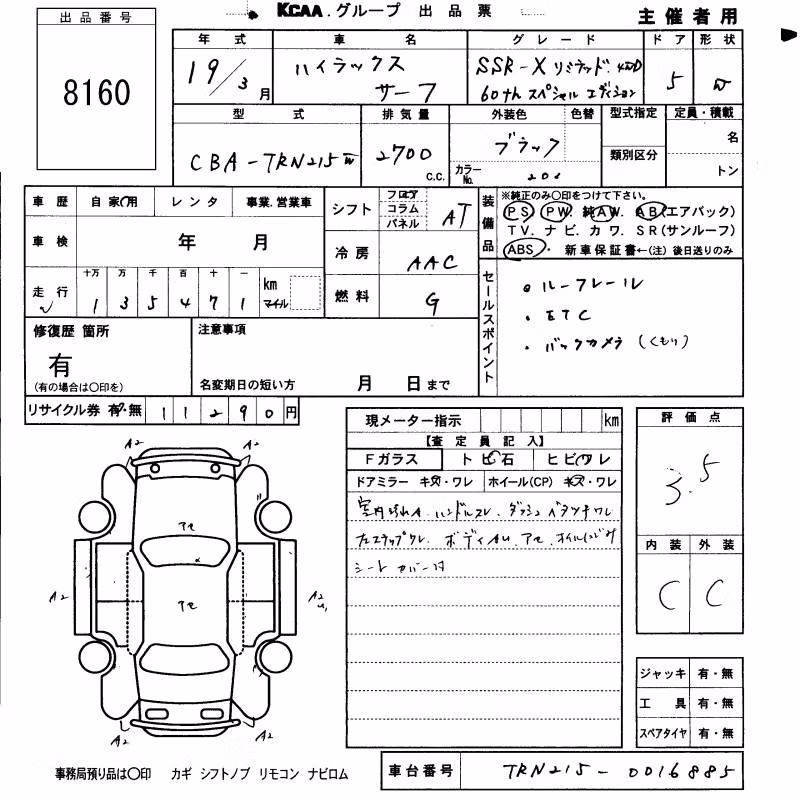 KCAA.グループ 出品票
主催者用
出品番号
8160
年式
19/3月
車名
ハイラックス
サーフ
グレード
SSR-X リミテッド 4WD
60th スペシャル エディション
ドア
5
形状
W
型式
CBA-TRN215W
排気量
2700 c.c.
外装色
ブラック
色替
カラーNo.
202
型式指定
類別区分
定員・積載
名
トン
車歴 自家用 レンタ 事業.営業車
車検 年 月
走行 十万 万 千 百 十 一
1 3 5 4 7 1 km マイル
シフト フロア コラム パネル AT
冷房 AAC
燃料 G
装備品
※純正のみ○印をつけて下さい。
PS. PW. 純AW. AB(エアバック)
TV. ナビ. カワ. SR(サンルーフ)
ABS. 新車保証書←(注) 後日送りのみ
セールスポイント
・ルーフレール
・ETC
・バックカメラ (くもり)
修復歴 箇所
有
(有の場合は○印を)
注意事項
名変期日の短い方 月 日まで
リサイクル券 有・無 11290円
現メーター指示 km
【査定員記入】
Fガラス トビ石 ヒビワレ
ドアミラー キズ・ワレ ホイール(CP) キズ・ワレ
室内汚れA.ハンドルスレ. ダッシュ ベタツキ ワレ
ボディAU.
シートカバー付
評価点
3.5
内装 外装
C C
ジャッキ 有・無
工具 有・無
スペアタイヤ 有・無
A2 A2
アセ
A2 アセ A2
A2 A2
事務局預り品は○印 カギ シフトノブ リモコン ナビロム
車台番号 TRN215-0016885